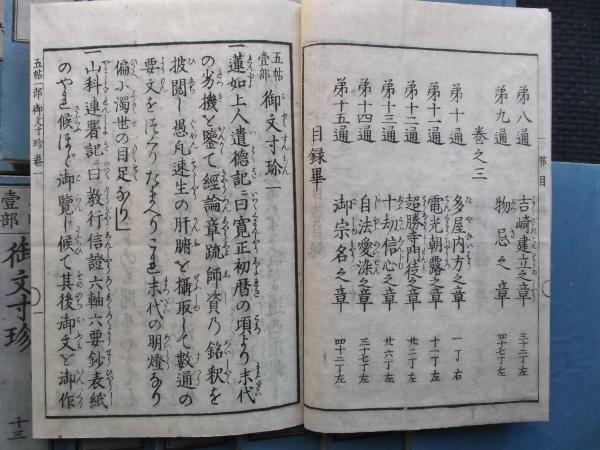 第八通 吉崎建立之章 三十二丁左
第九通 物忌之章 四十七丁左
巻之三
第十通 多屋内方之章 一丁右
第十一通 電光朝露之章 十一丁左
第十二通 超勝寺門徒之章 廿一丁左
第十三通 十劫信心之章 廿六丁左
第十四通 自法愛染之章 三十七丁左
第十五通 御宗名之章 四十二丁左
目録畢
五帖壹部 御文寸珍一
一蓮如上人遺徳記ニ曰寛正初暦の頃より末代
の劣機を鑒て經論章疏師資乃銘釈を
披閲し愚凡速生の肝腑を攝取して数通の
要文をつくりたまへりこれ末代の明燈なり
偏に濁世の目足なり
一山科連署記曰教行信證六軸六要鈔表紙
のやれ候ほど御覧し候て其後御文を御作
五帖一部 御文寸珍 卷一
壹部
御文寸珍
十三